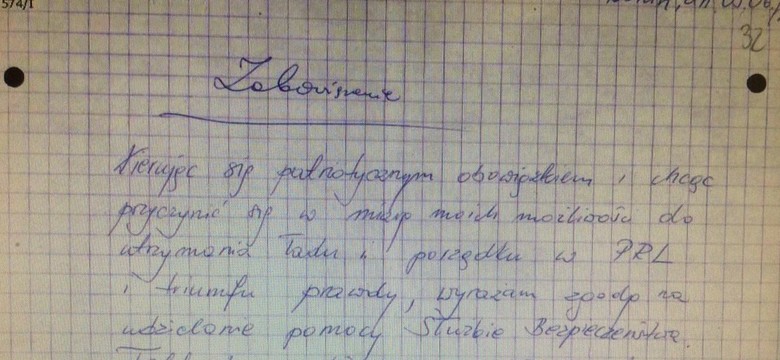 574/I
32
Zobowiązanie
Kierując się patriotycznym obowiązkiem i chcąc
przyczynić się w miarę moich możliwości do
utrzymania ładu i porządku w PRL
i triumfu prawdy, wyrażam zgodę na
udzielanie pomocy Służbie Bezpieczeństwa.